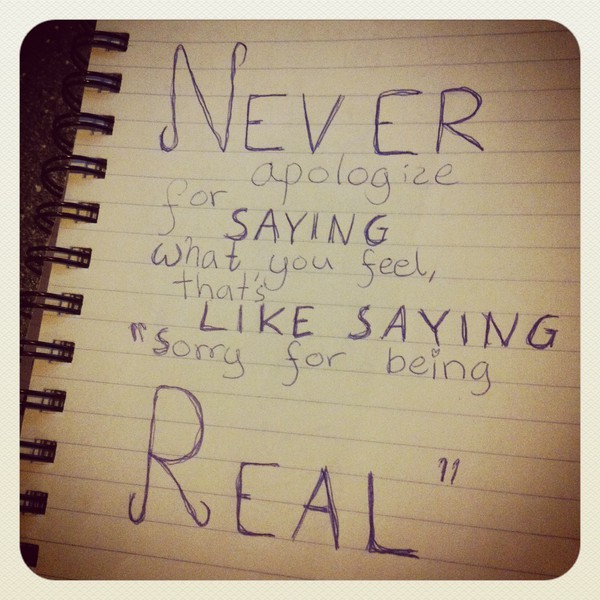 NEVER
apologize
for
SAYING
what you feel,
that's
LIKE SAYING
"Sorry for being
REAL"